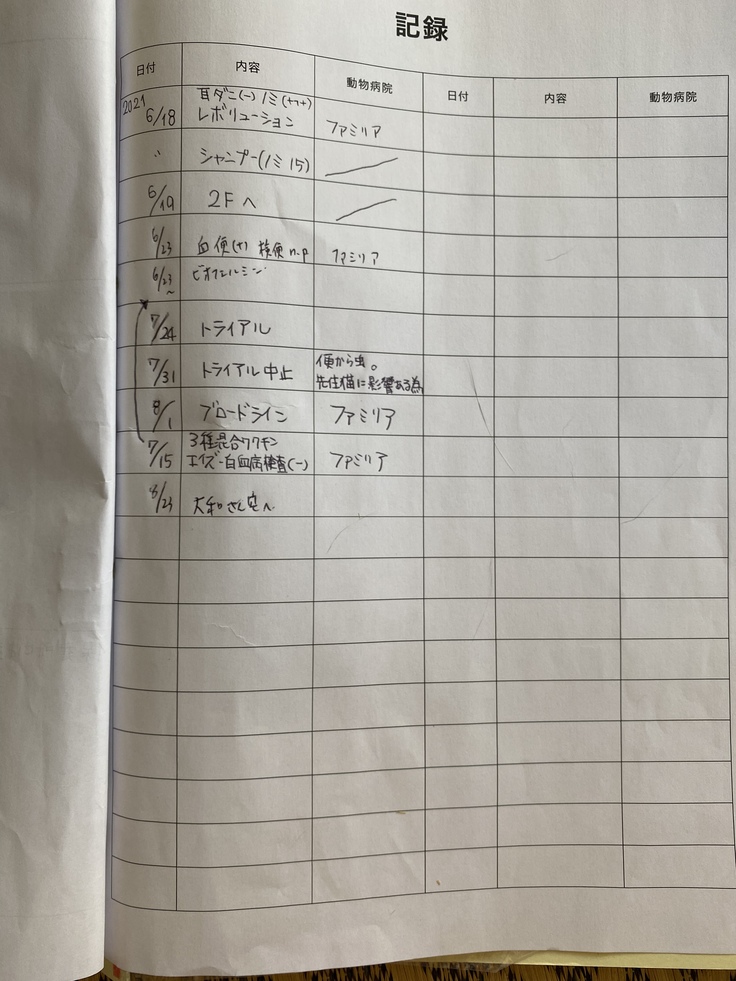 記録
日付 内容 動物病院 日付 内容 動物病院
2021 耳ダニ(-) ノミ(+++)
6/18 レボリューション ファミリア
〃 シャンプー(ノミ15)
6/19 2Fへ
6/23 血便(+) 検便n.p ファミリア
6/23~ ビオフェルミン
7/24 トライアル
7/31 トライアル中止 便から虫。
先住猫に影響ある為
8/1 ブロードライン ファミリア
7/15 3種混合ワクチン
エイズ・白血病検査(-) ファミリア
8/23 大和さん宅へ